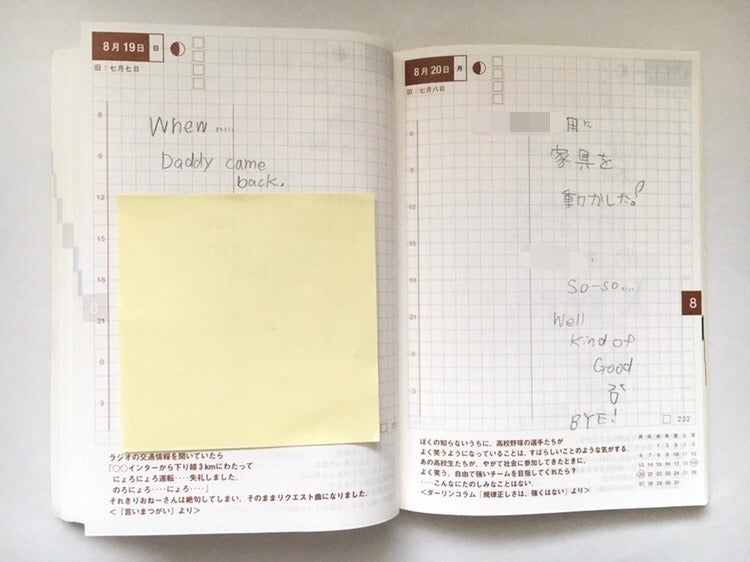 8月19日 日
旧:七月七日
6
9
12
15
18
21
0
3
When....
Daddy came
back.
ラジオの交通情報を聞いていたら
「○○インターから下り線3kmにわたって
にょろにょろ運転‥‥失礼しました。
のろにょろ‥‥にょろ‥‥」
それきりおねーさんは絶句してしまい、そのままリクエスト曲になりました。
<『言いまつがい』より>
8月20日 月
旧:七月八日
6
9
12
15
18
21
0
3
用に
家具を
動かした!
So-so...
Well
Kind of
Good
BYE!
8
232
ぼくの知らないうちに、高校野球の選手たちが
よく笑うようになっていることは、すばらしいことのような気がする。
あの高校生たちが、やがて社会に参加してきたときに、
よく笑う、自由で強いチームを目指してくれたら?
‥‥こんなにたのしみなことはない。
<ダーリンコラム「規律正しさは、強くはない」より>
月 火 水 木 金 土 日
1 2 3 4 5
6 7 8 9 10 11 12
13 14 15 16 17 18 19
20 21 22 23 24 25 26
27 28 29 30 31